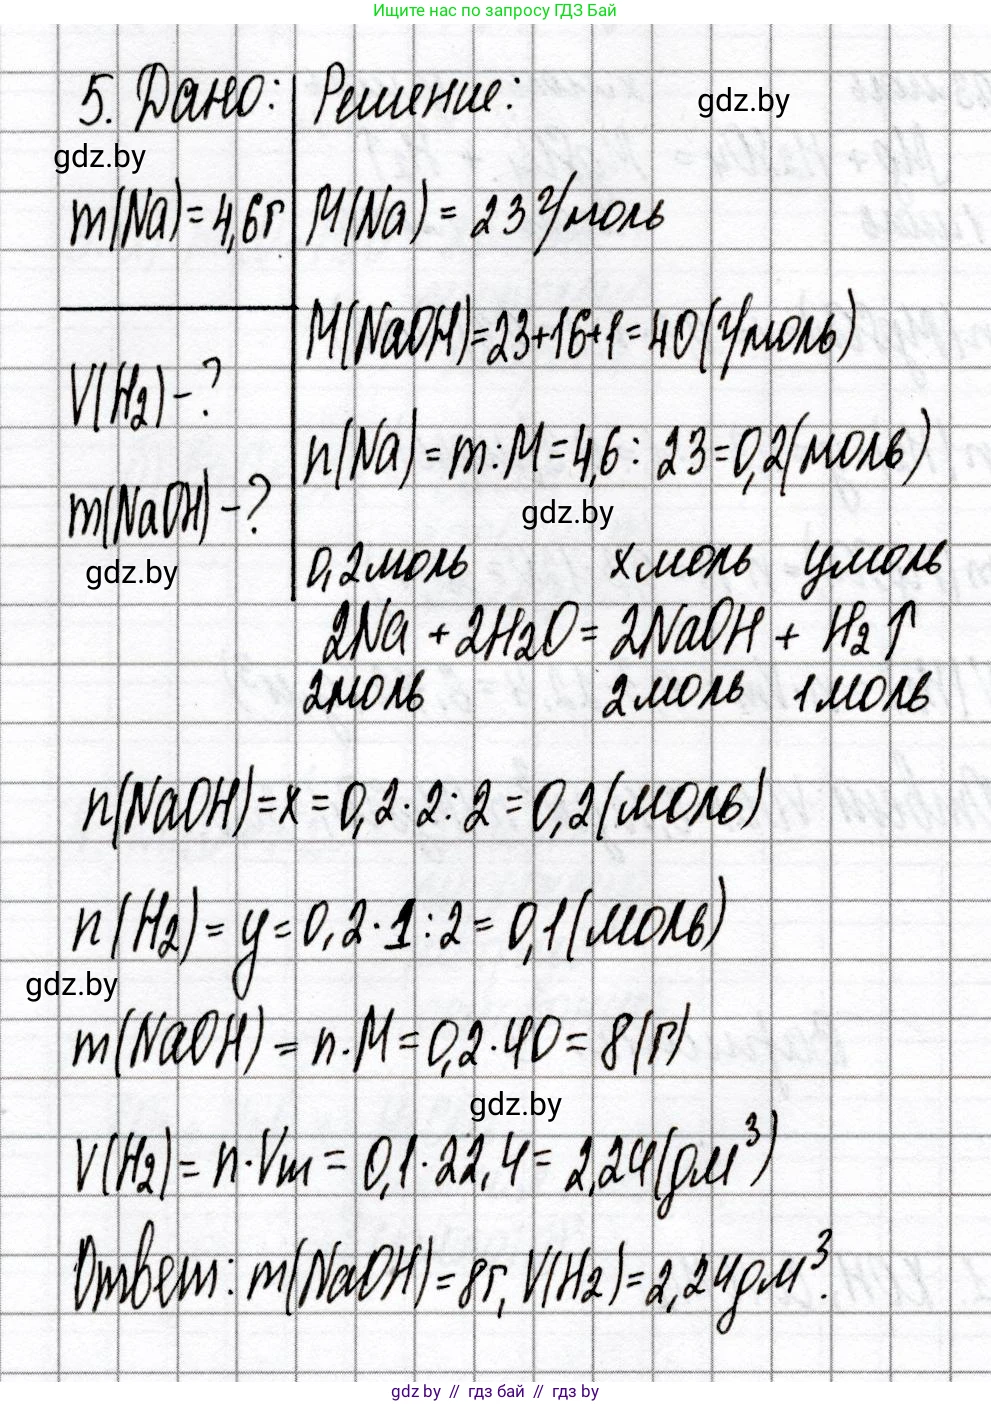 Ищите нас по запросу ГДЗ Бай
5. Дано: Решение:
gdz.by
gdz.by
m(Na) = 4,6г M(Na) = 23 г/моль
M(NaOH)=23+16+1=40(г/моль)
V(H₂) - ?
n(Na) = m:M = 4,6 : 23 = 0,2(моль)
m(NaOH) - ?
gdz.by
gdz.by
0,2моль х моль у моль
2Na + 2H₂O = 2NaOH + H₂↑
2моль 2моль 1моль
n(NaOH) = x = 0,2·2:2 = 0,2(моль)
n(H₂) = y = 0,2·1:2 = 0,1(моль)
gdz.by
m(NaOH) = n·M = 0,2·40 = 8(г)
gdz.by
V(H₂) = n·Vm = 0,1·22,4 = 2,24(дм³)
Ответ: m(NaOH) = 8г, V(H₂) = 2,24дм³.
gdz.by // гдз бай // гдз by